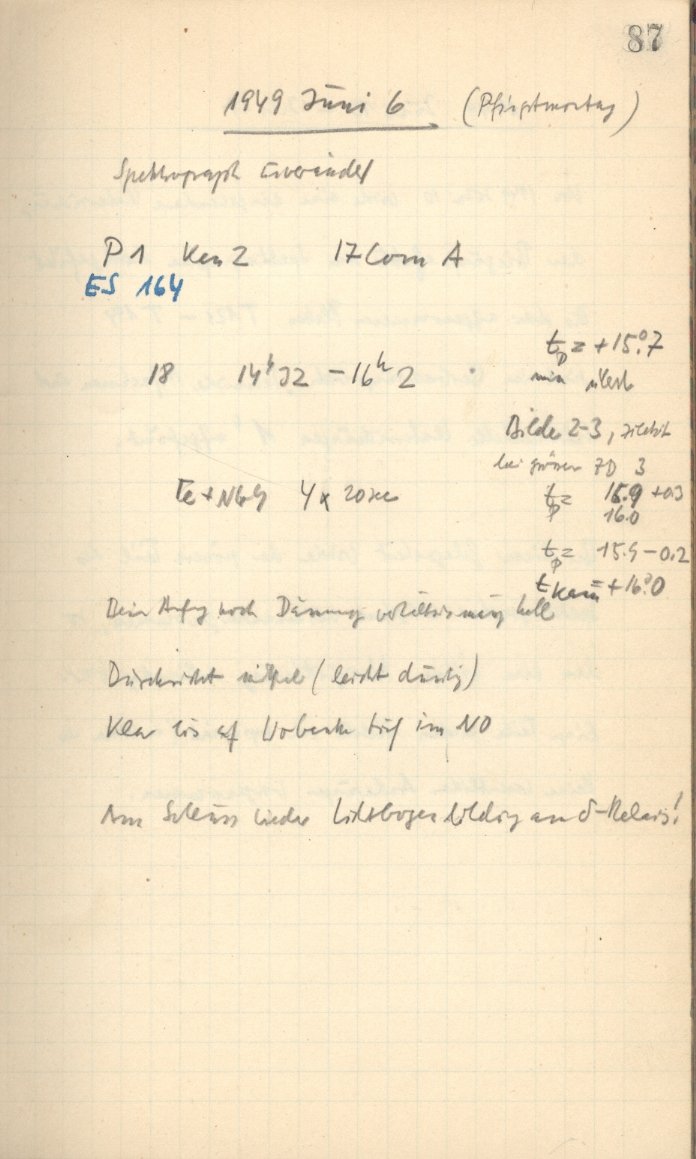 87
1949 Juni 6 (Pfingstmontag)
Spektrograph
P 1 Kam 2 17 Com A
ES 164
tp = +15°.7
18 14h 32 – 16h 2
min
Bilder 2-3, zuletzt
bei grösser ZD 3
Fe + 4 x 20 sec
tp = 15.9 +0.3
16.0
tp = 15.9 – 0.2
tKam = +16°.0
Beim Anfang noch Dämmerung verhältnismässig hell
Durchsicht mittel (leicht dunstig)
Klar bis auf Wolkenbank tief im NO
Am Schluss wieder Lichtbogenbildung am δ-Relais!